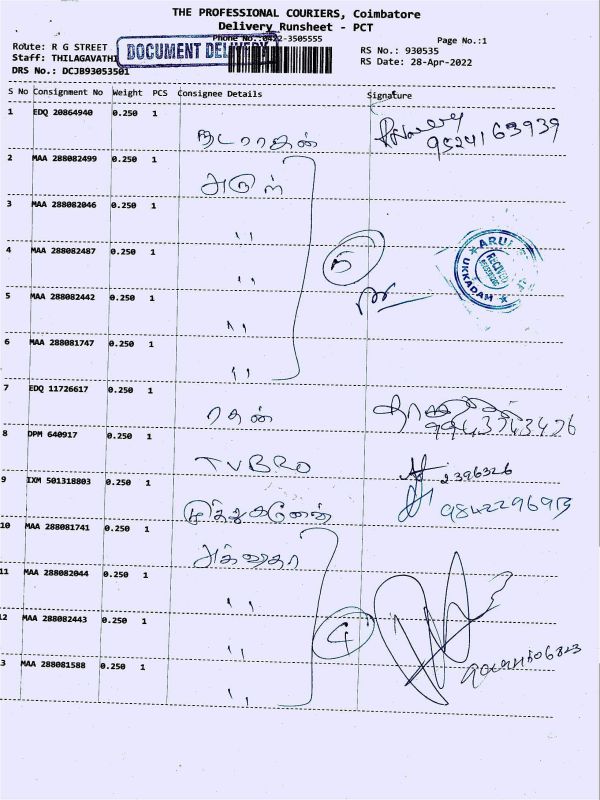 THE PROFESSIONAL COURIERS, Coimbatore
Delivery Runsheet - PCT
Phone No.:0422-3505555
Page No.:1
Route: R G STREET
RS No.: 930535
Staff: THILAGAVATHI
DOCUMENT DELIVERY
RS Date: 28-Apr-2022
DRS No.: DCJB93053501
S No Consignment No Weight PCS Consignee Details Signature
1 EDQ 20864940 0.250 1
நடராதன் 9524163939
2 MAA 288082499 0.250 1
அருள்
3 MAA 288082046 0.250 1
''
4 MAA 288082487 0.250 1
'' 5
ARUL
RECIVED
UKKADAM
5 MAA 288082442 0.250 1
''
6 MAA 288081747 0.250 1
''
7 EDQ 11726617 0.250 1
ரதன் 9943343426
8 DPM 640917 0.250 1
TVBRO 2396326
9 IXM 501318803 0.250 1
10 MAA 288081741 0.250 1
11 MAA 288082044 0.250 1
''
12 MAA 288082443 0.250 1
'' 4
13 MAA 288081588 0.250 1
''